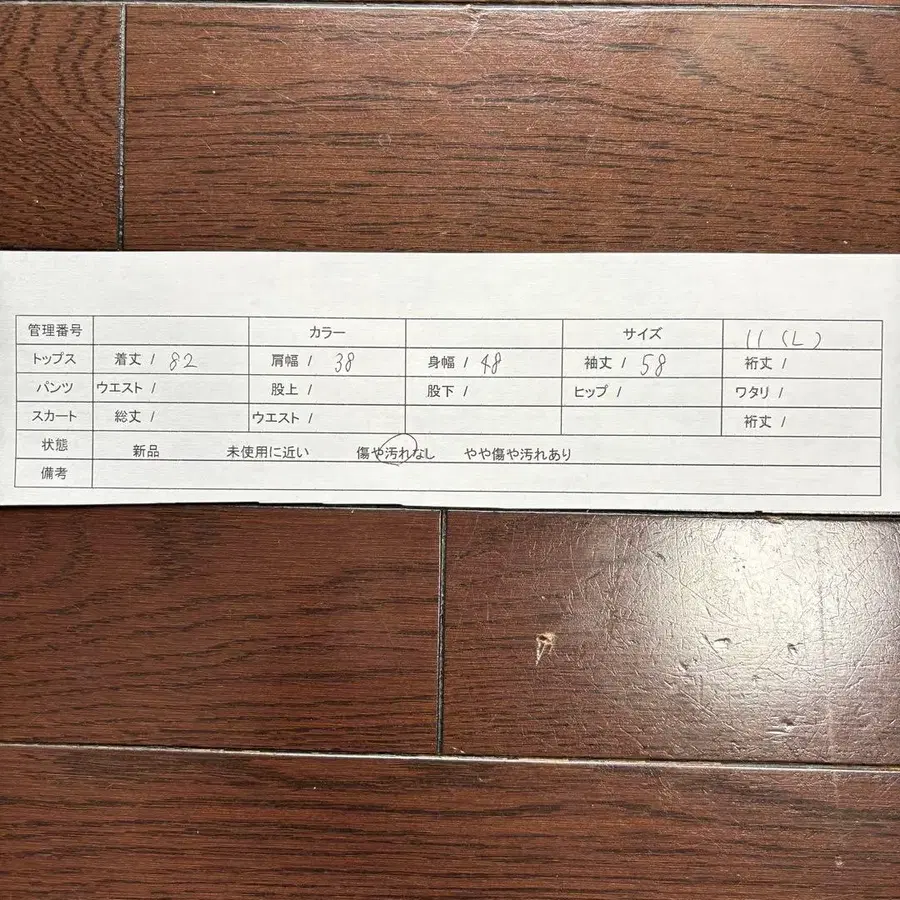 管理番号 カラー サイズ 11 (L)
トップス 着丈 / 82 肩幅 / 38 身幅 / 48 袖丈 / 58 裄丈 /
パンツ ウエスト / 股上 / 股下 / ヒップ / ワタリ /
スカート 総丈 / ウエスト / 裄丈 /
状態 新品 未使用に近い 傷や汚れなし やや傷や汚れあり
備考